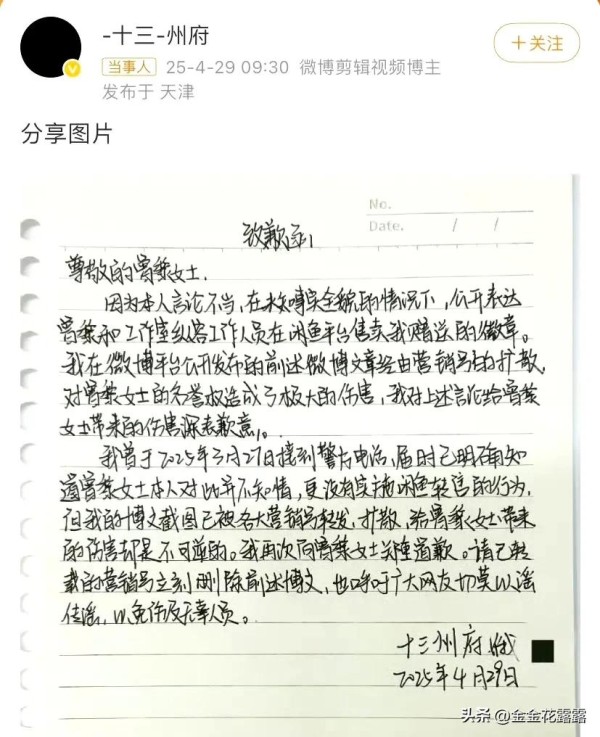 -十三-州府
+关注
当事人 25-4-29 09:30 微博剪辑视频博主
发布于 天津
分享图片
No.
Date. / /
致歉函
尊敬的曾黎女士.
因为本人言论不当,在未知事实全貌的情况下,公开表达
曾黎和工作室纵容工作人员在闲鱼平台售卖我赠送的徽章。
我在微博平台公开发布的前述微博文章经由营销号的扩散,
对曾黎女士的名誉权造成了极大的伤害,我对上述言论给曾黎
女士带来的伤害深表歉意。
我曾于2025年3月27日接到警方电话,届时已明确知
道曾黎女士本人对此并不知情,更没有实施闲鱼转售的行为,
但我的博文截图已被各大营销号转发、扩散,给曾黎女士带来
的伤害却是不可逆的。我再次向曾黎女士郑重道歉。请已转
载的营销号立刻删除前述博文,也呼吁广大网友切莫以谣
传谣,以免伤及无辜人员。
十三州府
2025年4月29日
头条 @金金花露露